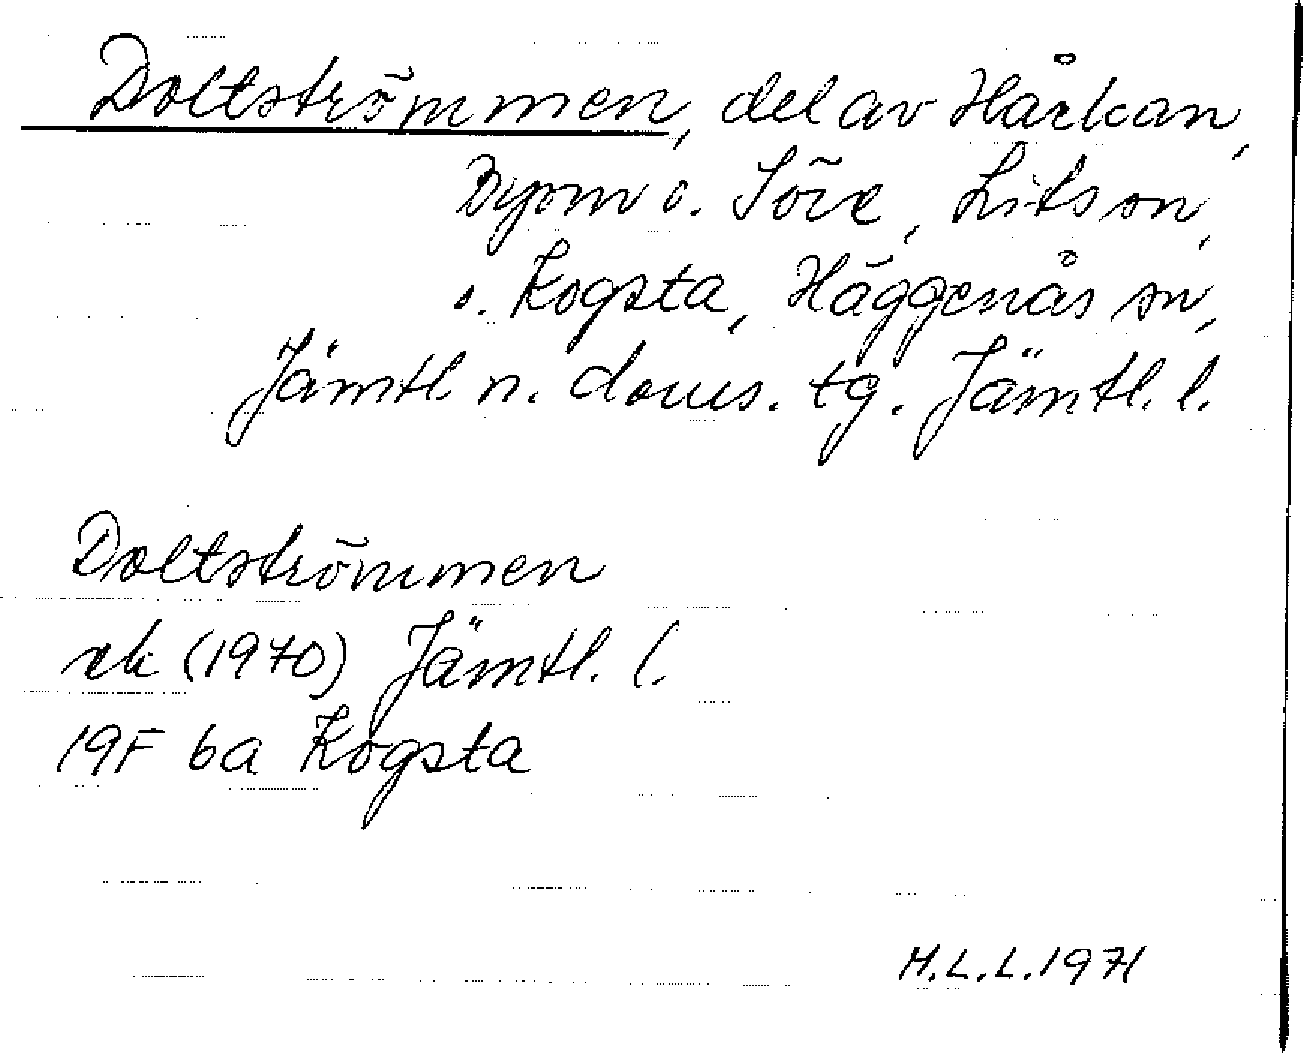 Doltströmmen, del av Hårkan,
Byom o. Söre, Lits sn,
o. Kogsta, Häggenås sn,
Jämtl. n. doms. tg. Jämtl. l.
Doltströmmen
ek (1970) Jämtl. l.
19F 6a Kogsta
H.L.L. 1971